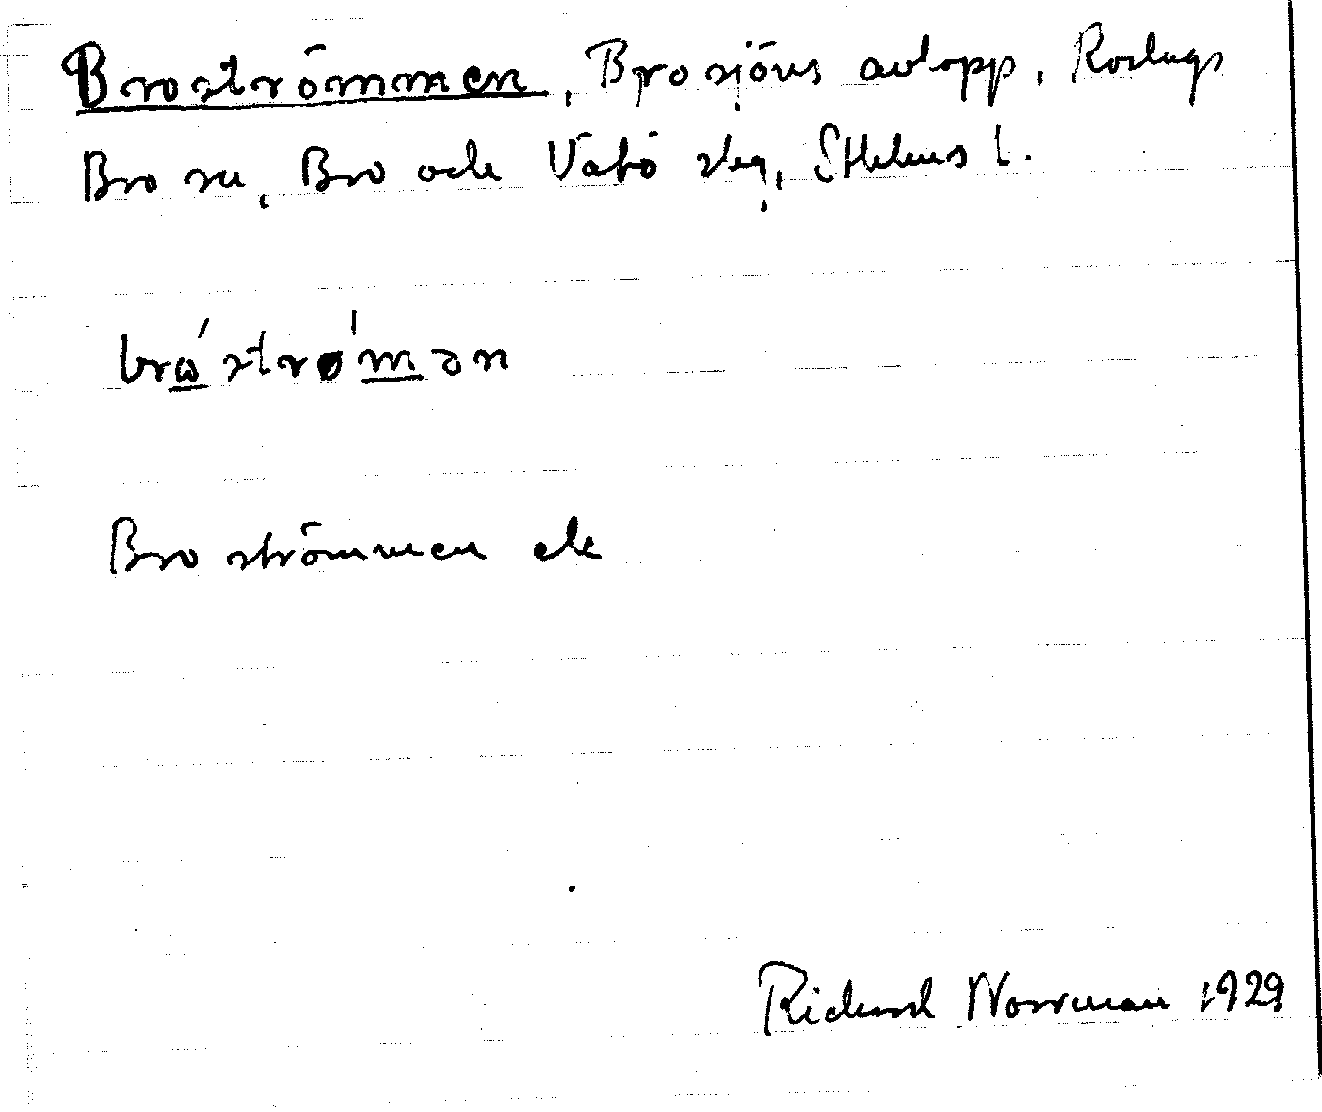 Broströmmen, Brosjöns avlopp, Roslags
Bro sn, Bro och Vätö skg, Sthlms l.
brώstrø'mən
Broströmmen ek
Richard Norrman 1929